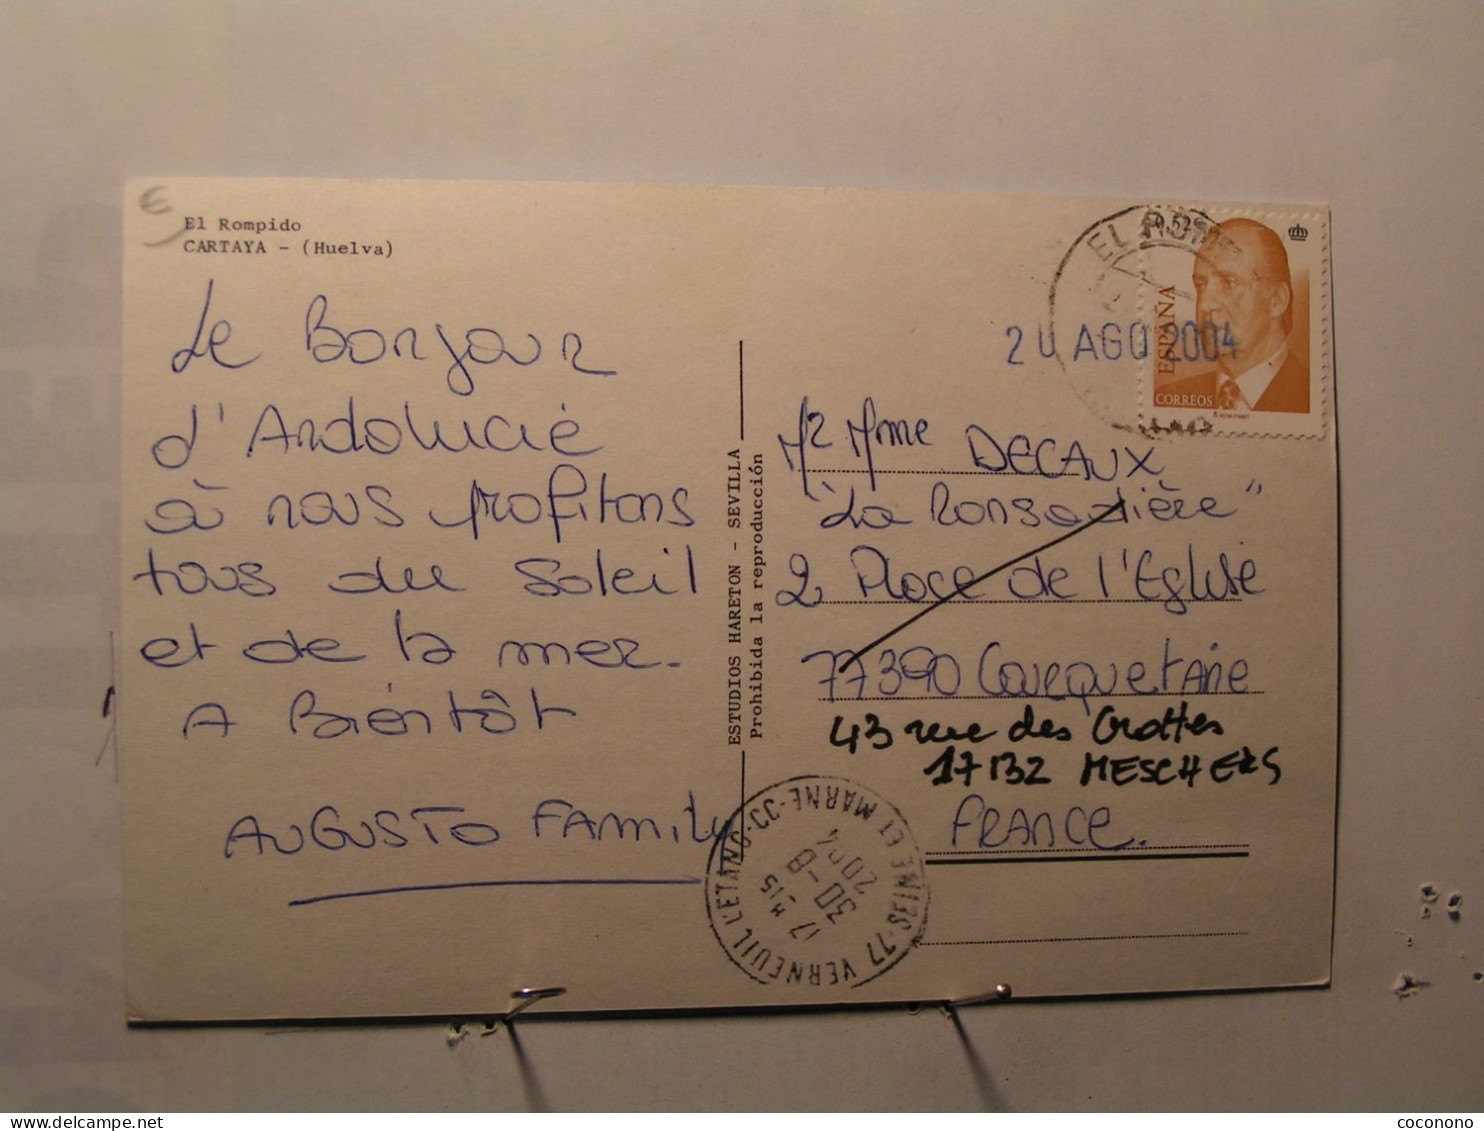 El Rompido
CARTAYA - (Huelva)
Le Bonjour
d'Andalucie
à nous profitons
tous du soleil
et de la mer.
A Bientôt
AUGUSTO FAMily
ESTUDIOS HARETON - SEVILLA
Prohibida la reproducción
EL ROM
20 AGO 2004
0,52€
ESPAÑA
CORREOS
Mr Mme DECAUX
"La Ronsadière"
2 Place de l'Eglise
77390 Courquetaine
43 rue des Grottes
17132 MESCHERS
FRANCE.
77 VERNEUIL L'ETANG-CC-SEINE ET MARNE
17 H 15
30-8
2004
coconono